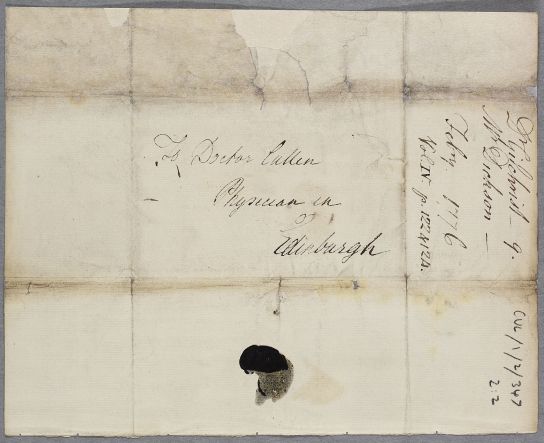 To Doctor Cullen
Physician in
Edinburgh
Dr Gilchrist - 9.
Mr Dickson -
Feby. 1776
Vol IV p. 122 &
CUL/1/2/347
2:2